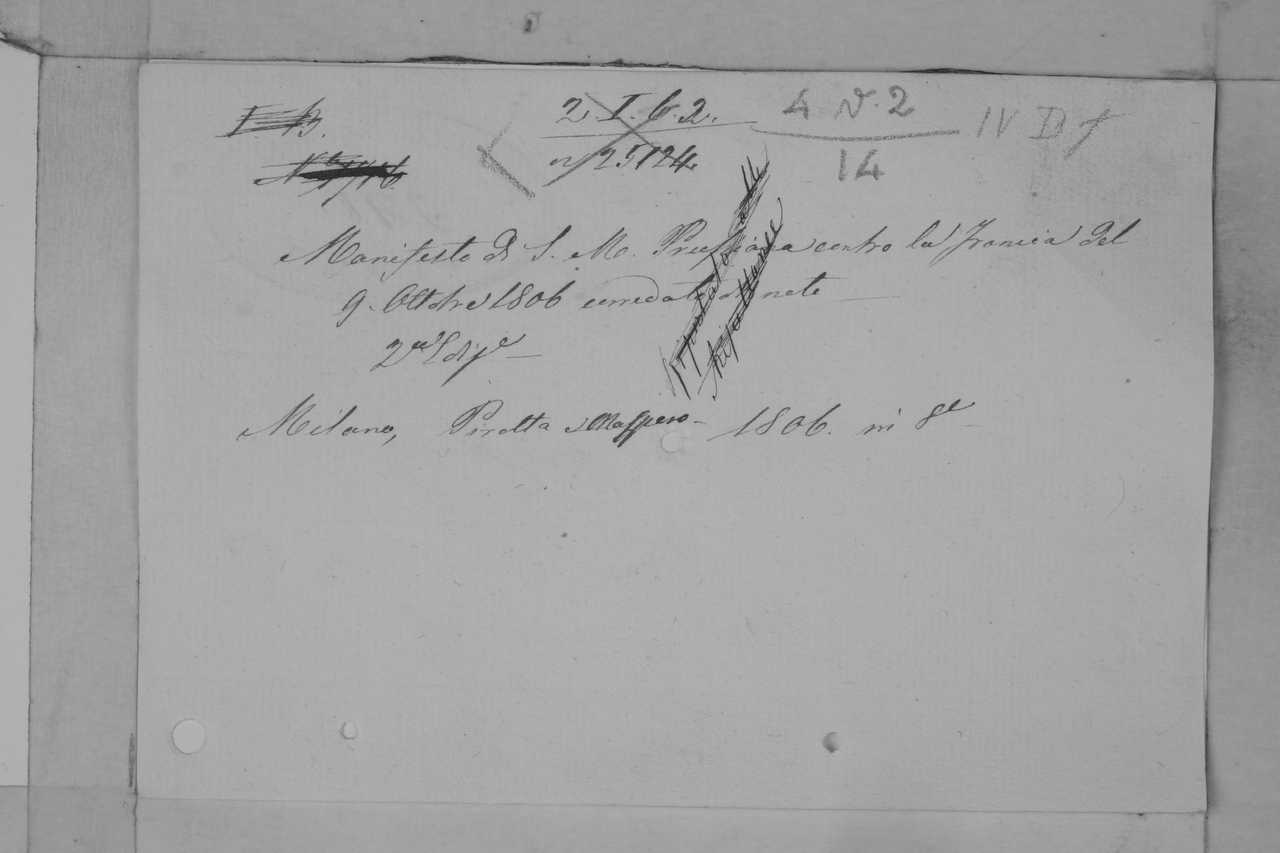 I B. 2. I. 6. 2. 4 V. 2 IV D f
n/ 25124 14
Manifesto di S. M. Prussiana contro la Francia del
9. Ottobre 1806 corredato di note
2da Ediz.e
Milano, Pirotta e Maspero 1806. in 8o